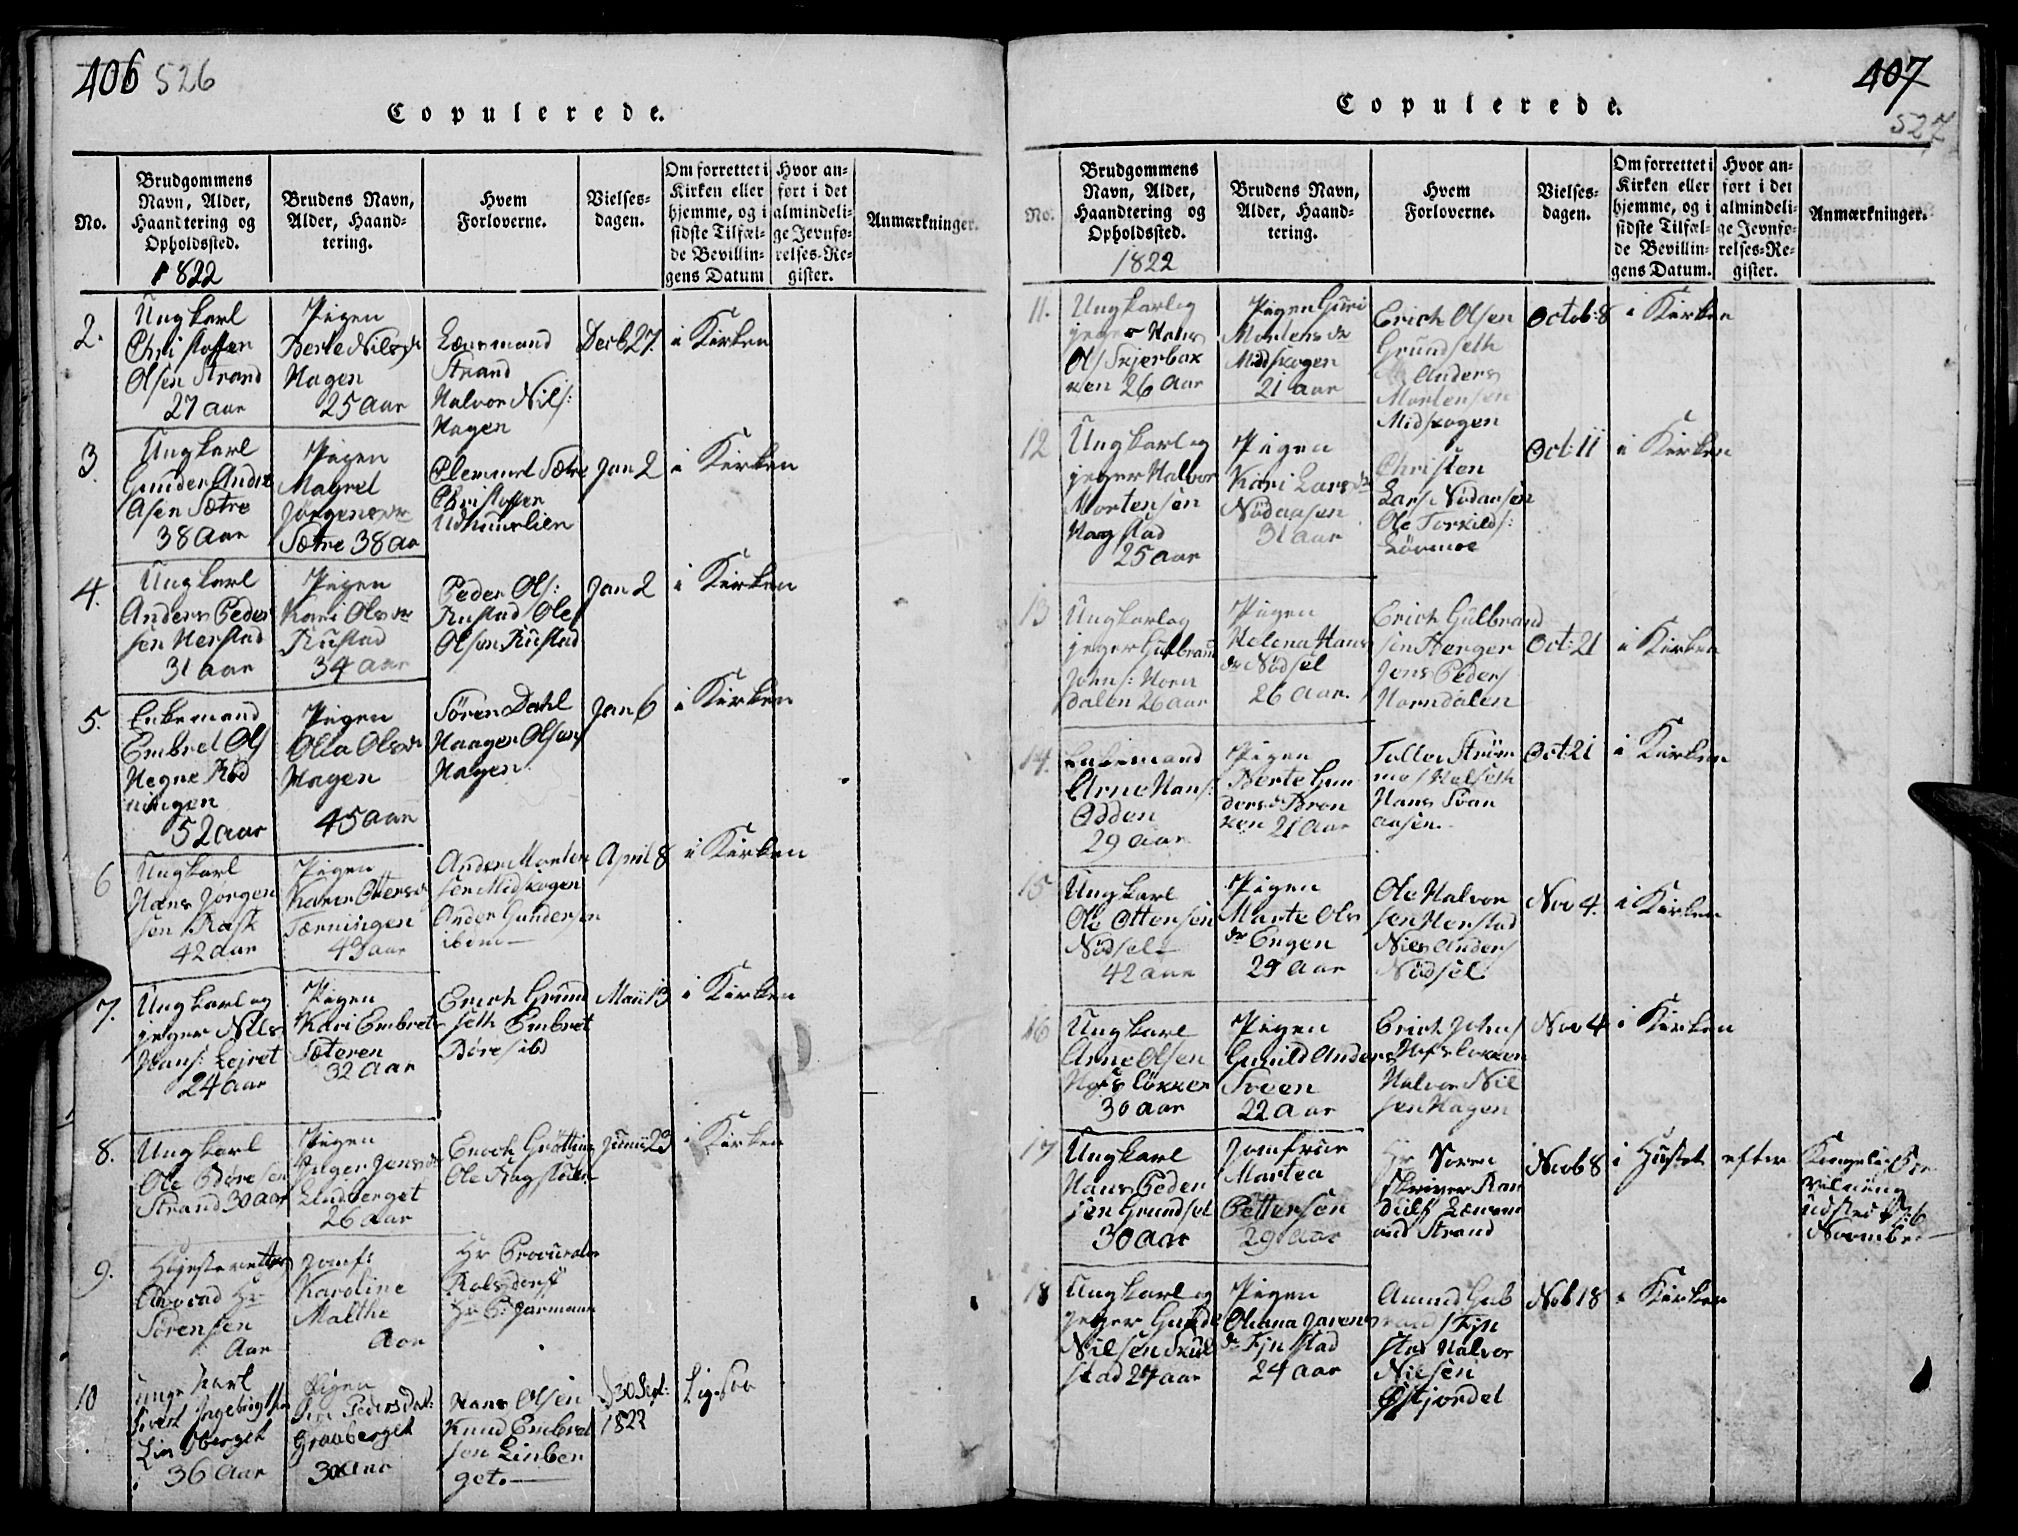 406 526
Copulerede.
No.
Brudgommens
Navn, Alder,
Haandtering og
Opholdssted.
1822
Brudens Navn,
Alder, Haand-
tering.
Hvem
Forloverne.
Vielses-
dagen.
Om forrettet i
Kirken eller
hjemme, og i
sidste Tilfæl-
de Bevillin-
gens Datum
Hvor an-
ført i det
almindeli-
ge Jevnfø-
relses-Re-
gister.
Anmærkninger.
2.
Ungkarl
Christoffer
Olsen Strand
27 Aar
Pigen
Berte Nilsdr
Hagen
25 Aar
Lænsmand
Strand
Halvor Nils:
Hagen
Decb 27.
i Kirken
3
Ungkarl
Gunder Andre
Asen Sætre
38 Aar
Pigen
Magrel
Jørgensdr
Sætre 38 Aa
Clemmet Sætre
Christoffer
Jan 2
i Kirken
4.
Ungkarl
Anders Peder
sen Herstad
31 Aar
Pigen
Kari Olsdr
Rustad
34 Aar
Peder Ols:
Rustad Ole
Olsen Rustad
Jan 2
i Kirken
5.
Enkemand
Embret Ols
Hegne Rød
ningen
52 Aar
Pigen
Olia Olsdr
Hagen
45 Aar
Sören Dahl
Haagen Olsen
Hagen
Jan 6
i Kirken
6
Ungkarl
Hans Jörgen
sen Rask
42 Aar
Pigen
Karen Ottersdr
Tærningen
43 Aar
Anders Morten
sen Midskogen
Ander Gundersen
ibem
April 8
i Kirken
7.
Ungkarl og
jeger Nils
Hans: Lejret
24 Aar
Pigen
Kari Embrets
Sæteren
32 Aar
Erich Grund
seth Embret
Böresibd
Maii 13
i Kirken
8.
Ungkarl
Ole Böresen
Strand 30 Aar
Pigen
Inger Jensdr
Lindberget
26 Aar
Enoch Grötting
Ole Ragstuen
Junii 23
i Kirken
9.
Högesteretts
Advocad Hr
Sörensen
Aar
Jomfr
Karoline
Malthe
Aar
Hr Procurator
Rolsdorff
Hr C: Garmann
10
unge karl
Sivert Ingebrigtsen
Lindberget
36 Aar
Pigen
Siri Pedersdatt:
Graaberget
30 Aar
Hans Olsen
Knud Embret
sen Linber
get.
d 30 Sept:
1822
Ligesaa
407
527
Copulerede.
No.
Brudgommens
Navn, Alder,
Haandtering og
Opholdssted.
1822
Brudens Navn,
Alder, Haand-
tering.
Hvem
Forloverne.
Vielses-
dagen.
Om forrettet i
Kirken eller
hjemme, og i
sidste Tilfæl-
de Bevillin-
gens Datum.
Hvor an-
ført i det
almindeli-
ge Jevnfø-
relses-Re-
gister.
Anmærkninger.
11.
Ungkarl og
jeger Hans
Ols Skjerbæk
ken 26 Aar
Pigen Guri
Mortensdr
Midskogen
21 Aar
Erich Olsen
Grundseth
Anders
Mortensen
Midskogen
Octob: 8
i Kirken
12
Ungkarl og
jeger Halvor
Mortensen
Hagstad
25 Aar
Pigen
Kari Larsdr
Nödaasen
31 Aar
Christen
Lars Nödaasen
Ole Torkilds:
Lövmoe
Oct: 11
i Kirken
13
Ungkarl og
jeger Gulbrand
Johns: Horn
dalen 26 Aar
Pigen
Helena Hans
dr Nödsel
26 Aar.
Erich Gulbrand
sen Berger
Jens Peders
Horndalen
Oct: 21
i Kirken
14.
Enkemand
Arne Hans:
Odden
29 Aar
Pigen
Berte Gun
dersdr Bron
ken 21 Aar
Tollev Ström
moe Helseth
Hans Svan
aasen.
Oct: 21
i Kirken
15
Ungkarl
Ole Ottersen
Nödsel
42 Aar
Pigen
Marte Ols
dr Engen
29 Aar
Ole Halvor
sen Herstad
Niels Anders
Nödsel
Nov 4.
i Kirken
16
Ungkarl
Arne Olsen
Hofslökken
30 Aar
Pigen
Gunild Anders
Sveen
22 Aar
Erich Johns
Hofslökken
Halvor Nil
sen Hagen
Nov 4
i Kirken
17
Ungkarl
Hans Peder
sen Grundset
30 Aar
Jomfrue
Martea
Pettersen
29 Aar
Hr Soren
Skriver Ran
dulf Lænsm
and Strand
Novb 8
i Huset efter
Kongelig Be
vilning
udsted d: 6
Novmber
18
Ungkarl og
jeger Gunder
Nilsen Skul
stad 24 Aar
Pigen
Oliana Jorens
dr Fjnstad
24 Aar
Amund Gul
brands Fjn
stad Halvor
Nielsen
Östjordet
Nob 18
i Kirken